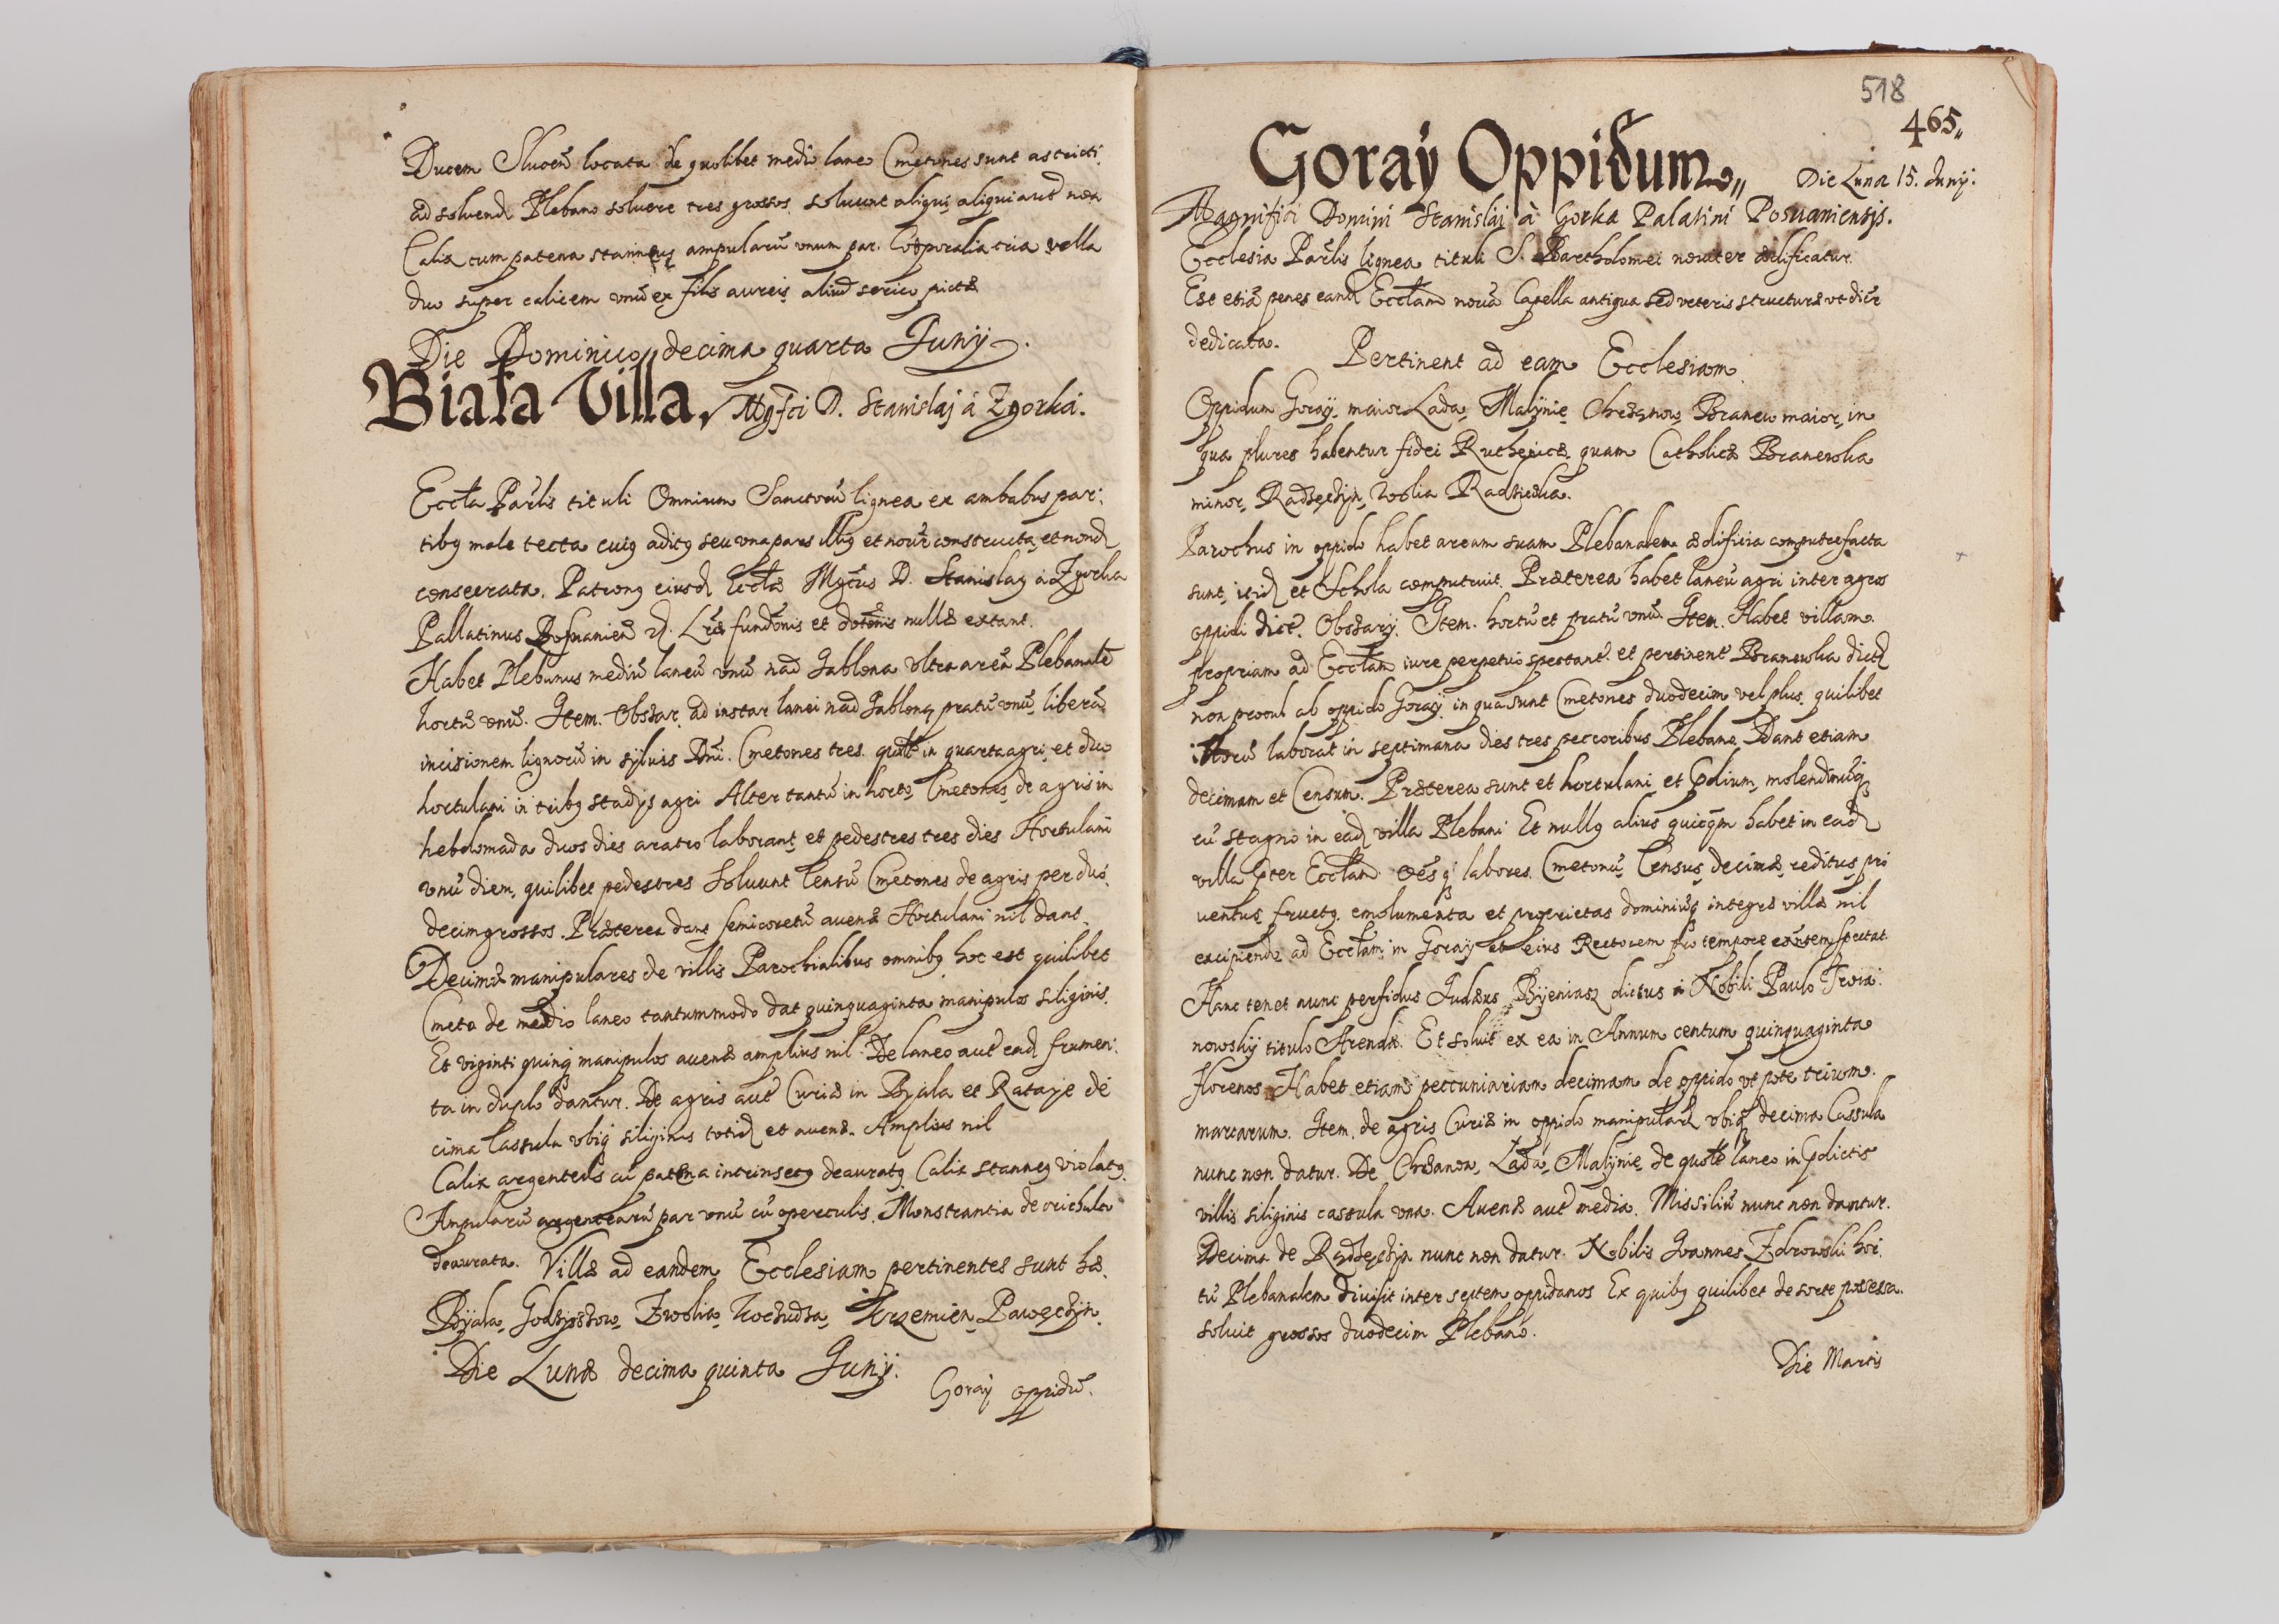 Ducem Sluceñ locata de quolibet medio laneo Cmetones sunt astricti
ad solvend Plebano solvere tres grossos. solvunt aliqui, aliqui aut non
Calix cum patena stanneus ampularũ unum par. Corporalia tria vella
duo super calicem unũ ex filis aureis aliud serico pictæ
Die Dominico decima quarta Junij.
Biała Villa, Mgfci D. Stanislaj á Zgorka.
Eccła Parlis tituli Omnium Sanctorũ lignea ex ambabus par:
tibq male tecta cuiq aditq seu una pars illiq et noũr constructa, et nond
consecrata. Patronq eiusd Eccłæ Mgcus D. Stanislaq á Zgorka
Pallatinus Posnanieñ Lræ fundõnis et dotõnis nullæ extant.
Habet Plebanus mediũ laneũ unũ nad Jablona ultra areã Plebanalẽ
hortũ unũ. Item. Obszar ad instar lanei nad Jabloną pratũ unũ, liberã
incisionem lignorũ in sylvis Dñi. Cmetones tres. quilt in quarta agri, et duo
hortulani in tribq stadijs agri Alter tantũ in horto, Cmetones de agris in
hebdomada duos dies aratro laborant, et pedestres tres dies Hortulani
unũ diem, quilibet pedestres Solvunt Censũ Cmetones de agris per duo
decim grossos. Præterea dant semicoretũ avenæ Hortulani nil dant.
Decimæ manipulares de villis Parochialibus omnibq hoc est quilibet
Cmeto de medio laneo tantummodo dat quinquaginta manipulos siliginis.
Et viginti quinq manipulos avenæ amplius nil. De laneo aut ead frumen:
ta in duplo dantur. De agris aut Curiæ in Byala et Rataje de
cima Cassula ubiq siliginis totid et avenæ. Amplius nil
Calix argenteus cũ patena intrinsecq deauratq Calix stanneq violatq.
Ampularũ argentearũ par unũ cũ operculis. Monstrantia de orichalco
deaurata. Villæ ad eandem Ecclesiam pertinentes sunt hæ.
Byala, Godzyszow, Zwolia, Kochudza, Krzemien, Pawęczyn.
Die Lunæ decima quinta Junij.
Goraÿ oppidũ.
518
465
Goraÿ Oppidum
Die Lunæ 15. Junij.
Magnifici Domini Stanislai á Gorka Palatini Posnaniensis.
Ecclesia Parlis lignea tituli S. Bartholomei noviter ædificatur.
Est etiã penes eand Eccłam novã Capella antiqua sed veteris structuræ ut dicr
dedicata.
Pertinent ad eam Ecclesiam
Oppidum Goraÿ, maior Lada, Malynie, Chrzanow, Branew maior, in
qua plures habentur fidei Ruthenicæ quam Catholicæ Branewka
minor, Radzęczyn, Wolia Radzięcka.
Parochus in oppido habet aream suam Plebanalem ædificia computrefacta
sunt, itid et Schola computruit. Præterea habet laneũ agri inter agros
oppidi dict. Obszary. Item. hortũ et pratũ unũ. Item. Habet villam
propriam ad Eccłam iure perpetuo spectant. et pertinent Branewka dictd
non procul ab oppido Goraÿ in qua sunt Cmetones duodecim vel plus, quilibet
illorũ laborat in septimana dies tres peccoribus Plebano. Dant etiam
decimam et Censum. Præterea sunt et hortulani et Pdium, molendinũq
cũ stagno in ead villa Plebani Et nullq alius quicqm habet in ead
villa pter Eccłam oẽsq labores Cmetonũ, Census, decimæ, reditus, pro
ventus, fructq, emolumenta et proprietas dominiũq integræ villæ nil
excipiendo ad Eccłam in Goraÿ et eius Rectorem pro tempore spectat.
Hanc tenet nunc perfidus Judæus Byeniasz dictus á Nobili Paulo Troia:
nowskij titulo Arendæ. Et solvit ex ea in Annum centum quinquaginta
florenos Habet etiam peccuniariam decimam de oppido ut pote trium
marcarum. Item. de agris Curiæ in oppido manipulard ubiq decima Cassula
nunc non datur. De Chrzanow, Lada, Malynie, de quolt laneo in pdictis
villis siliginis cassula una. Avenæ aut media. Missiliũ nunc non dantur.
Decima de Radzęczyn nunc non datur. Nobilis Joannes Zdrowski hor
tũ Plebanalem divisit inter septem oppidanos Ex quibq quilibet de sorte possessa
solvit grossos duodecim Plebano.
Die Martis